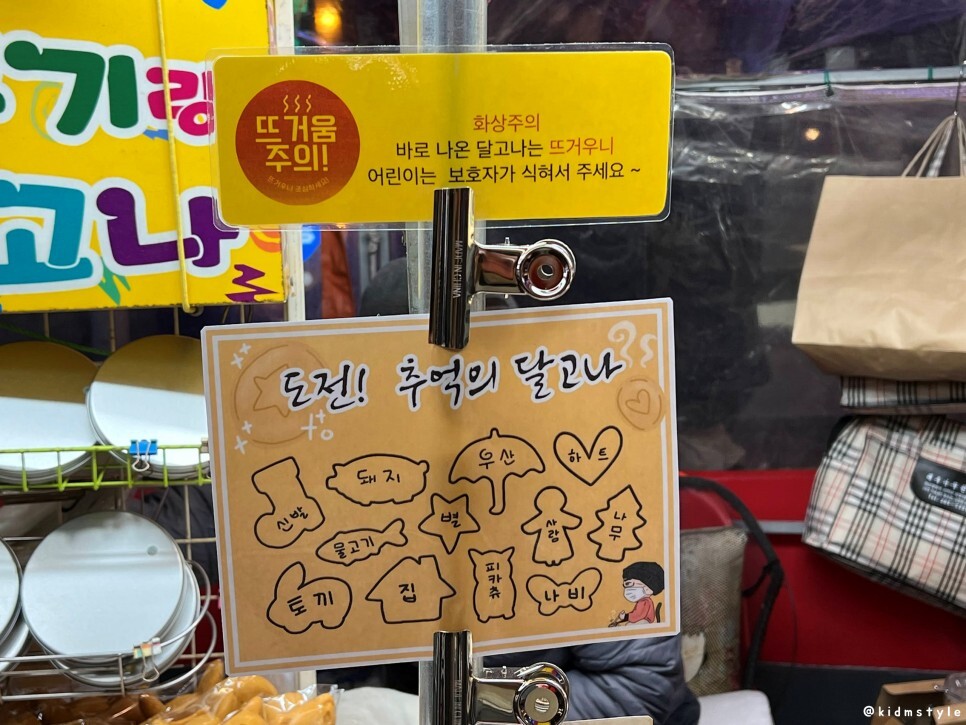 기랑
고나
뜨거움
주의!
뜨거우니 조심하세요!
화상주의
바로 나온 달고나는 뜨거우니
어린이는 보호자가 식혀서 주세요 ~
MADE IN CHINA
도전! 추억의 달고나
신발
돼지
우산
하트
물고기
별
사람
나무
토끼
집
피카츄
나비
@kidmstyle